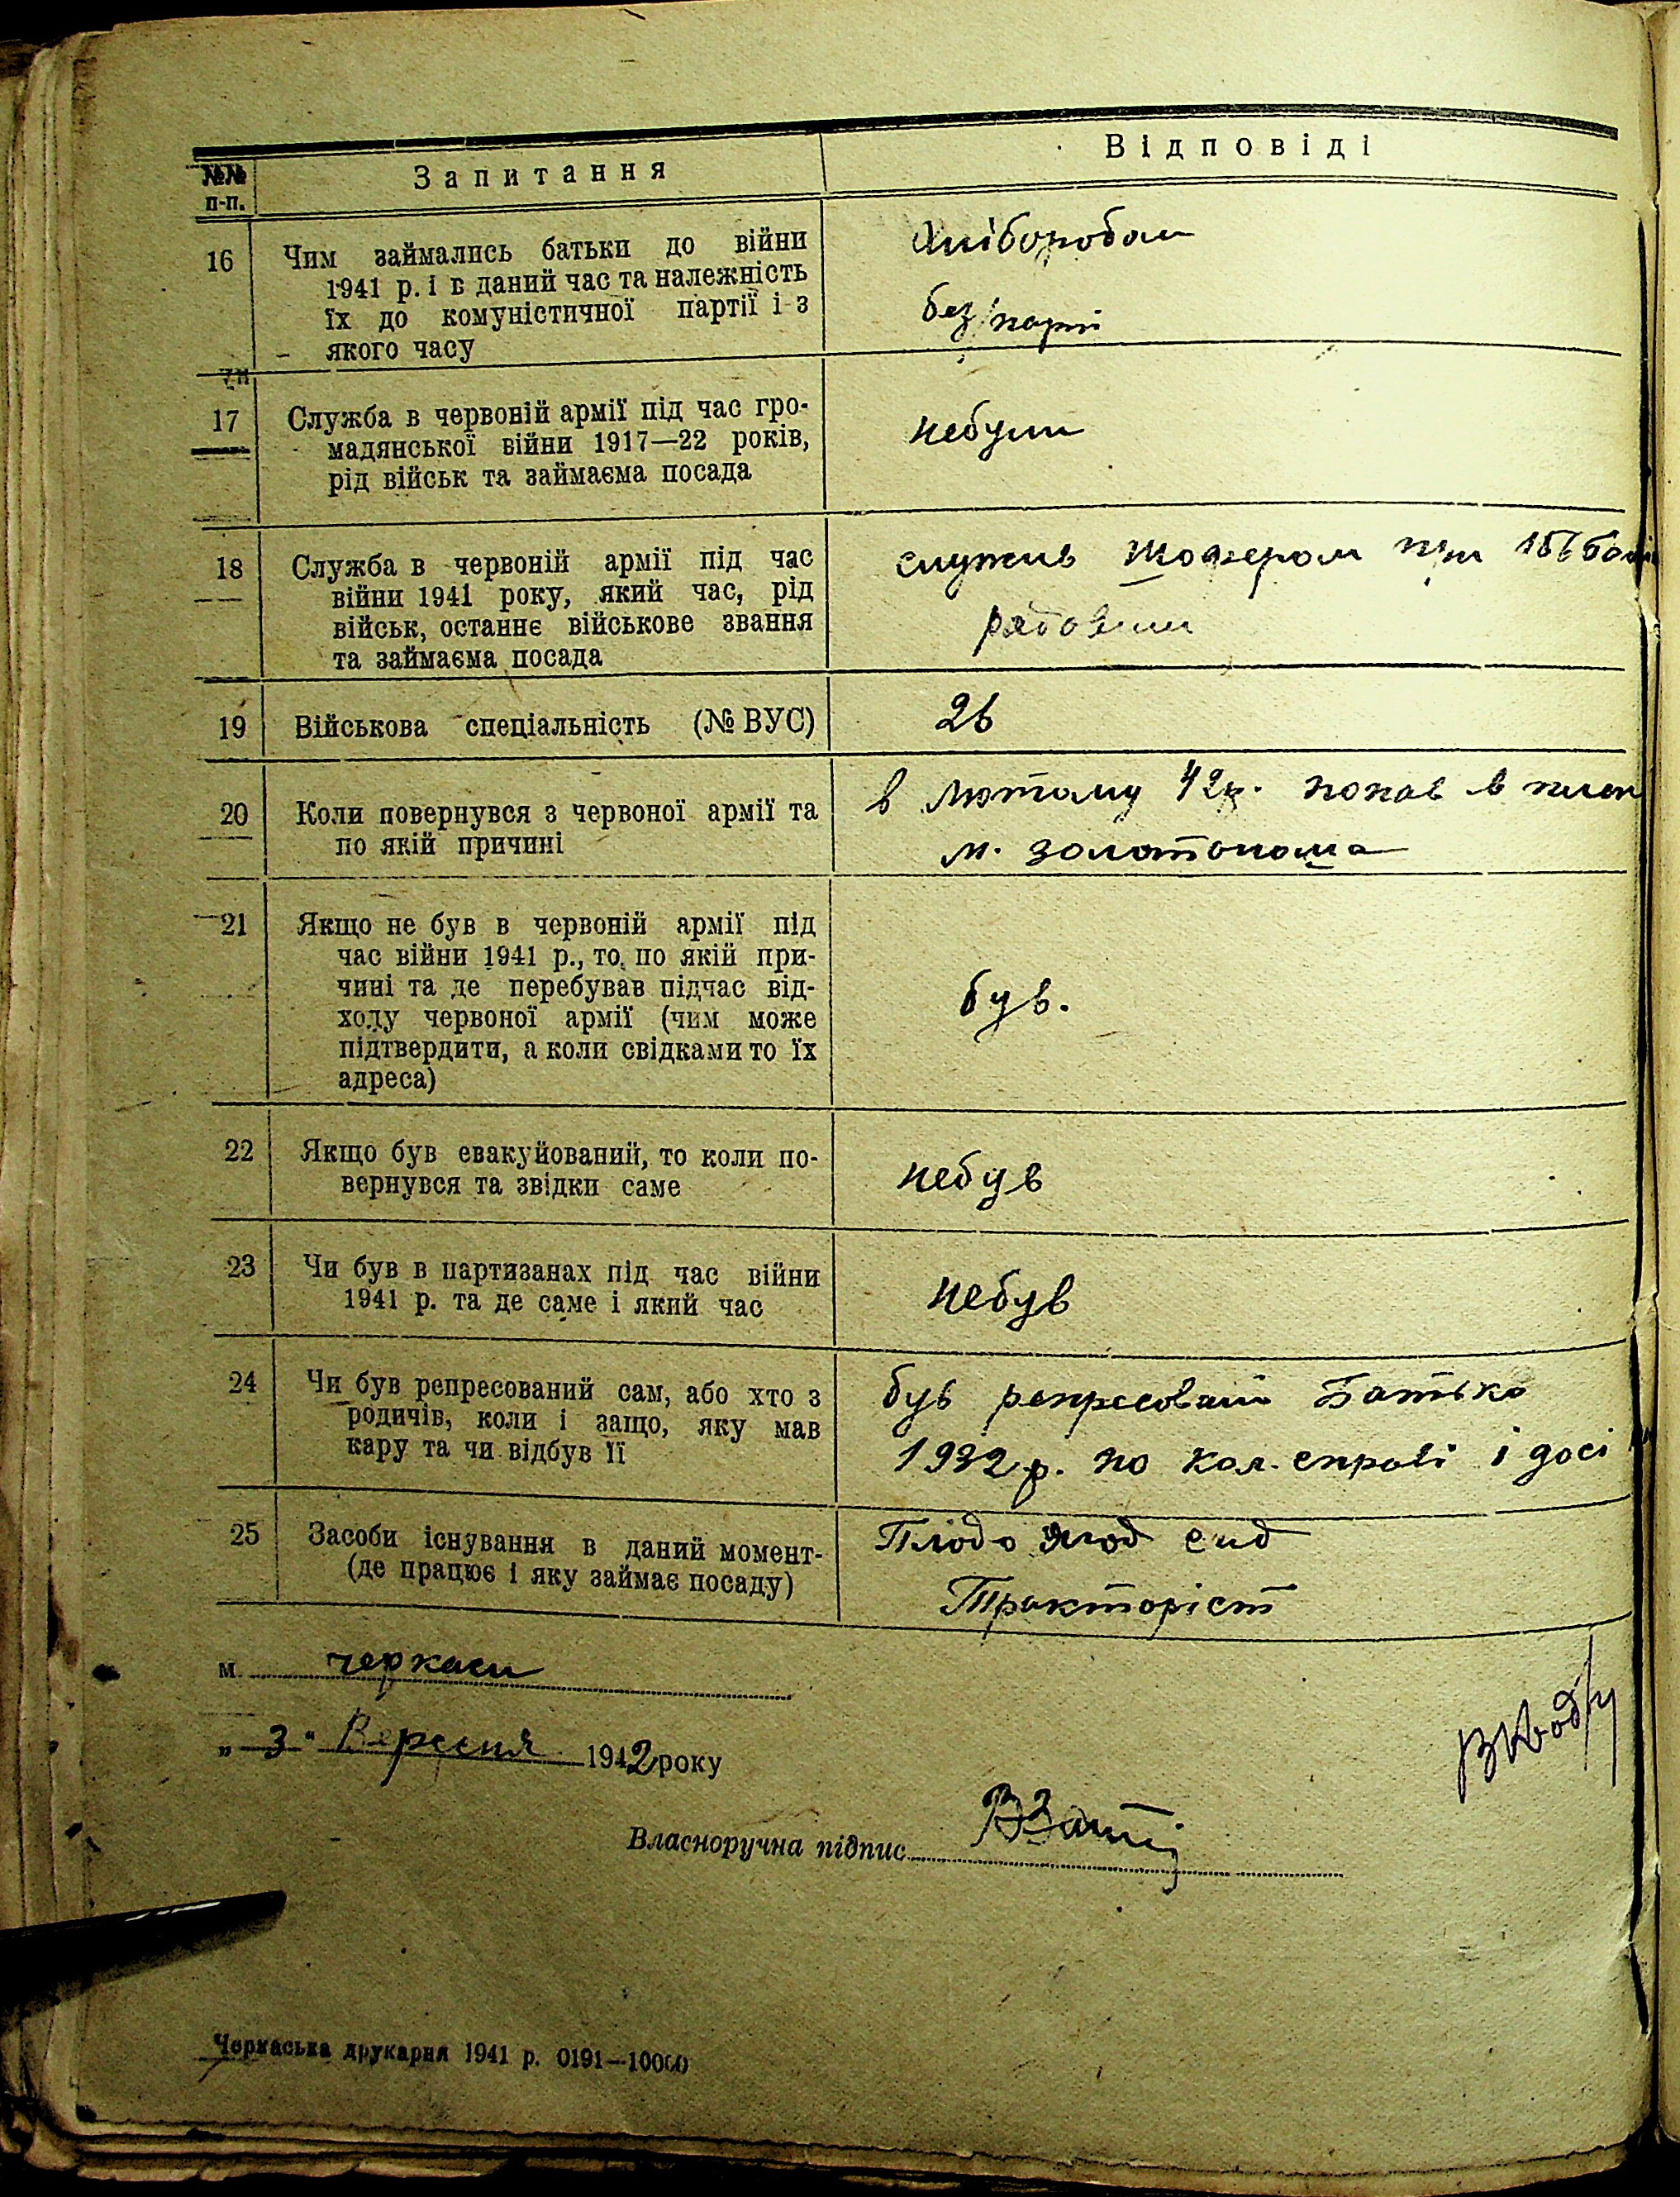 №№ п-п.
Запитання
Відповіді
16
Чим займались батьки до війни
1941 р. і в даний час та належність
їх до комуністичної партії і з
якого часу
хліборобом
без/парті
17
Служба в червоній армії під час гро-
мадянської війни 1917—22 років,
рід військ та займаєма посада
небули
18
Служба в червоній армії під час
війни 1941 року, який час, рід
військ, останнє військове звання
та займаєма посада
служив при
рядовим
19
Військова спеціальність (№ ВУС)
26
20
Коли повернувся з червоної армії та
по якій причині
в лютому 42р. попав в плен
м. золотоноша
21
Якщо не був в червоній армії під
час війни 1941 р., то, по якій при-
чині та де перебував підчас від-
ходу червоної армії (чим може
підтвердити, а коли свідками то їх
адреса)
був.
22
Якщо був евакуйований, то коли по-
вернувся та звідки саме
небув
23
Чи був в партизанах під час війни
1941 р. та де саме і який час
небув
24
Чи був репресований сам, або хто з
родичів, коли і защо, яку мав
кару та чи відбув її
був репресований Батько
1932р. по кол. справі і досі
25
Засоби існування в даний момент-
(де працює і яку займає посаду)
Плодо ягод
Тракторіст
м. черкаси
„3“ Вересня 1942 року
Власноручна підпис
Черкаська друкарня 1941 р. 0191—10000